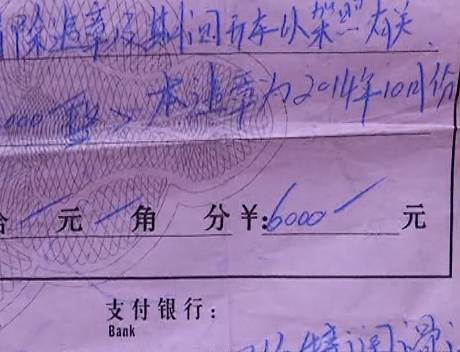 除违章及其间开车以架照有关
000整 本违章为2014年10月份
拾 元 角 分 ¥:6000 元
支付银行:
Bank